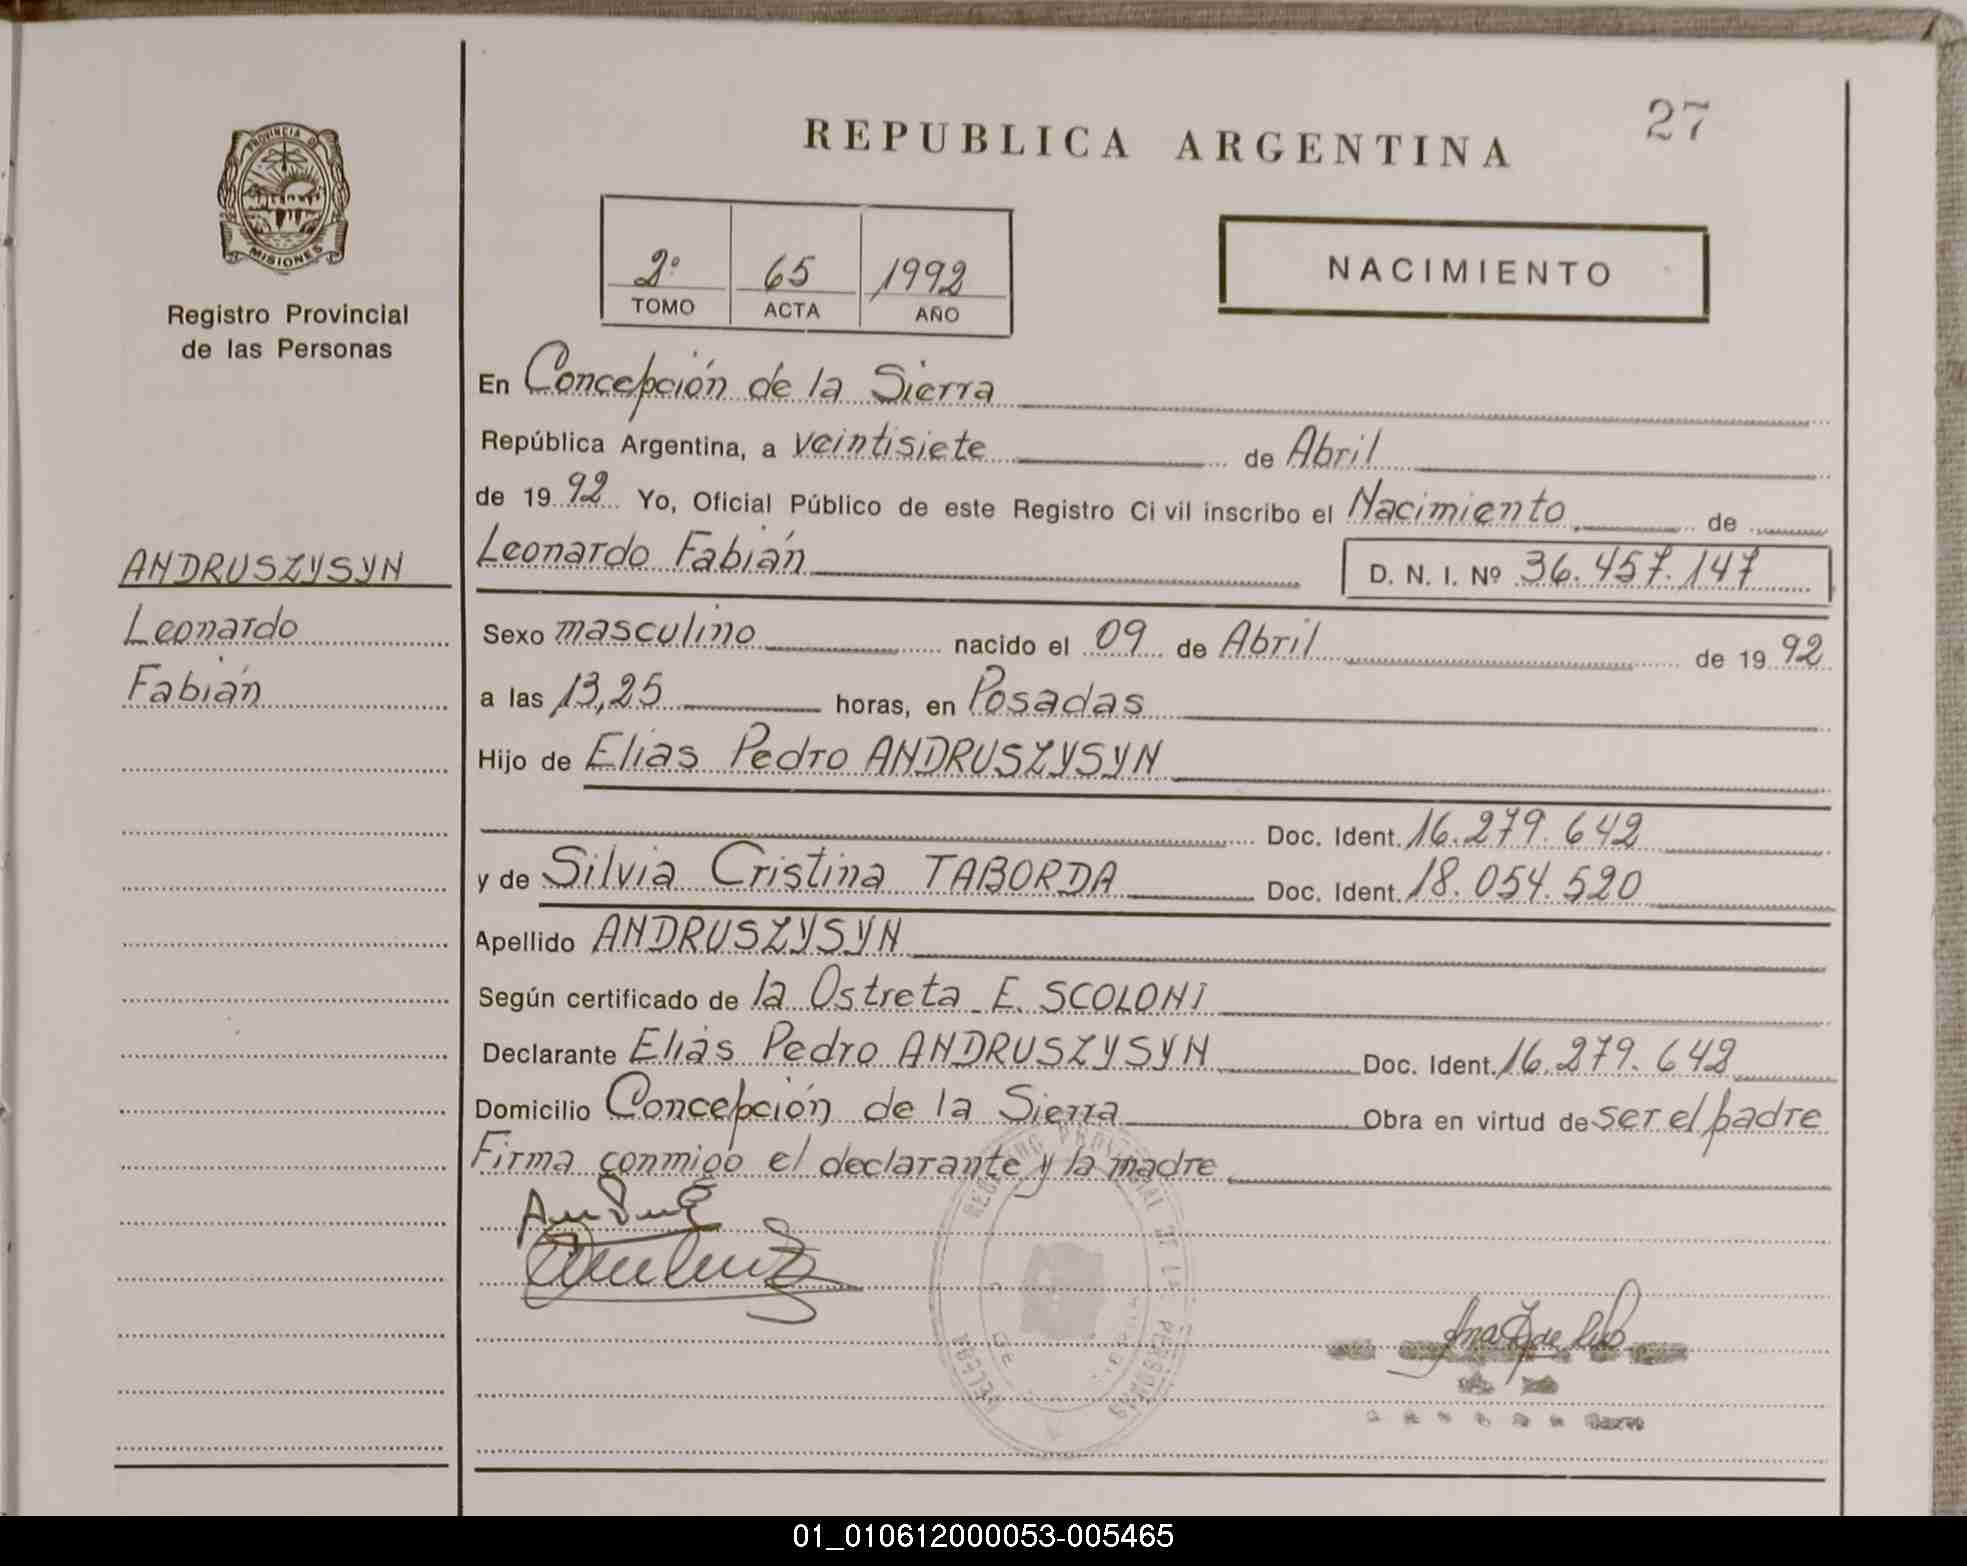 27
REPUBLICA ARGENTINA
PROVINCIA DE
MISIONES
Registro Provincial
de las Personas
2º 65 1992
TOMO ACTA AÑO
NACIMIENTO
En Concepción de la Sierra
República Argentina, a veintisiete de Abril
de 19 92 Yo, Oficial Público de este Registro Civil inscribo el Nacimiento de
Leonardo Fabián D. N. I. Nº 36.457.147
ANDRUSZYSYN
Leonardo
Fabián
Sexo masculino nacido el 09 de Abril de 19 92
a las 13,25 horas, en Posadas
Hijo de Elias Pedro ANDRUSZYSYN
Doc. Ident. 16.279.642
y de Silvia Cristina TABORDA Doc. Ident. 18.054.520
Apellido ANDRUSZYSYN
Según certificado de la Ostreta E. SCOLONI
Declarante Elías Pedro ANDRUSZYSYN Doc. Ident. 16.279.642
Domicilio Concepción de la Sierra Obra en virtud de ser el padre
Firma conmigo el declarante y la madre
REGISTRO PROVINCIAL DE LAS PERSONAS
01_010612000053-005465